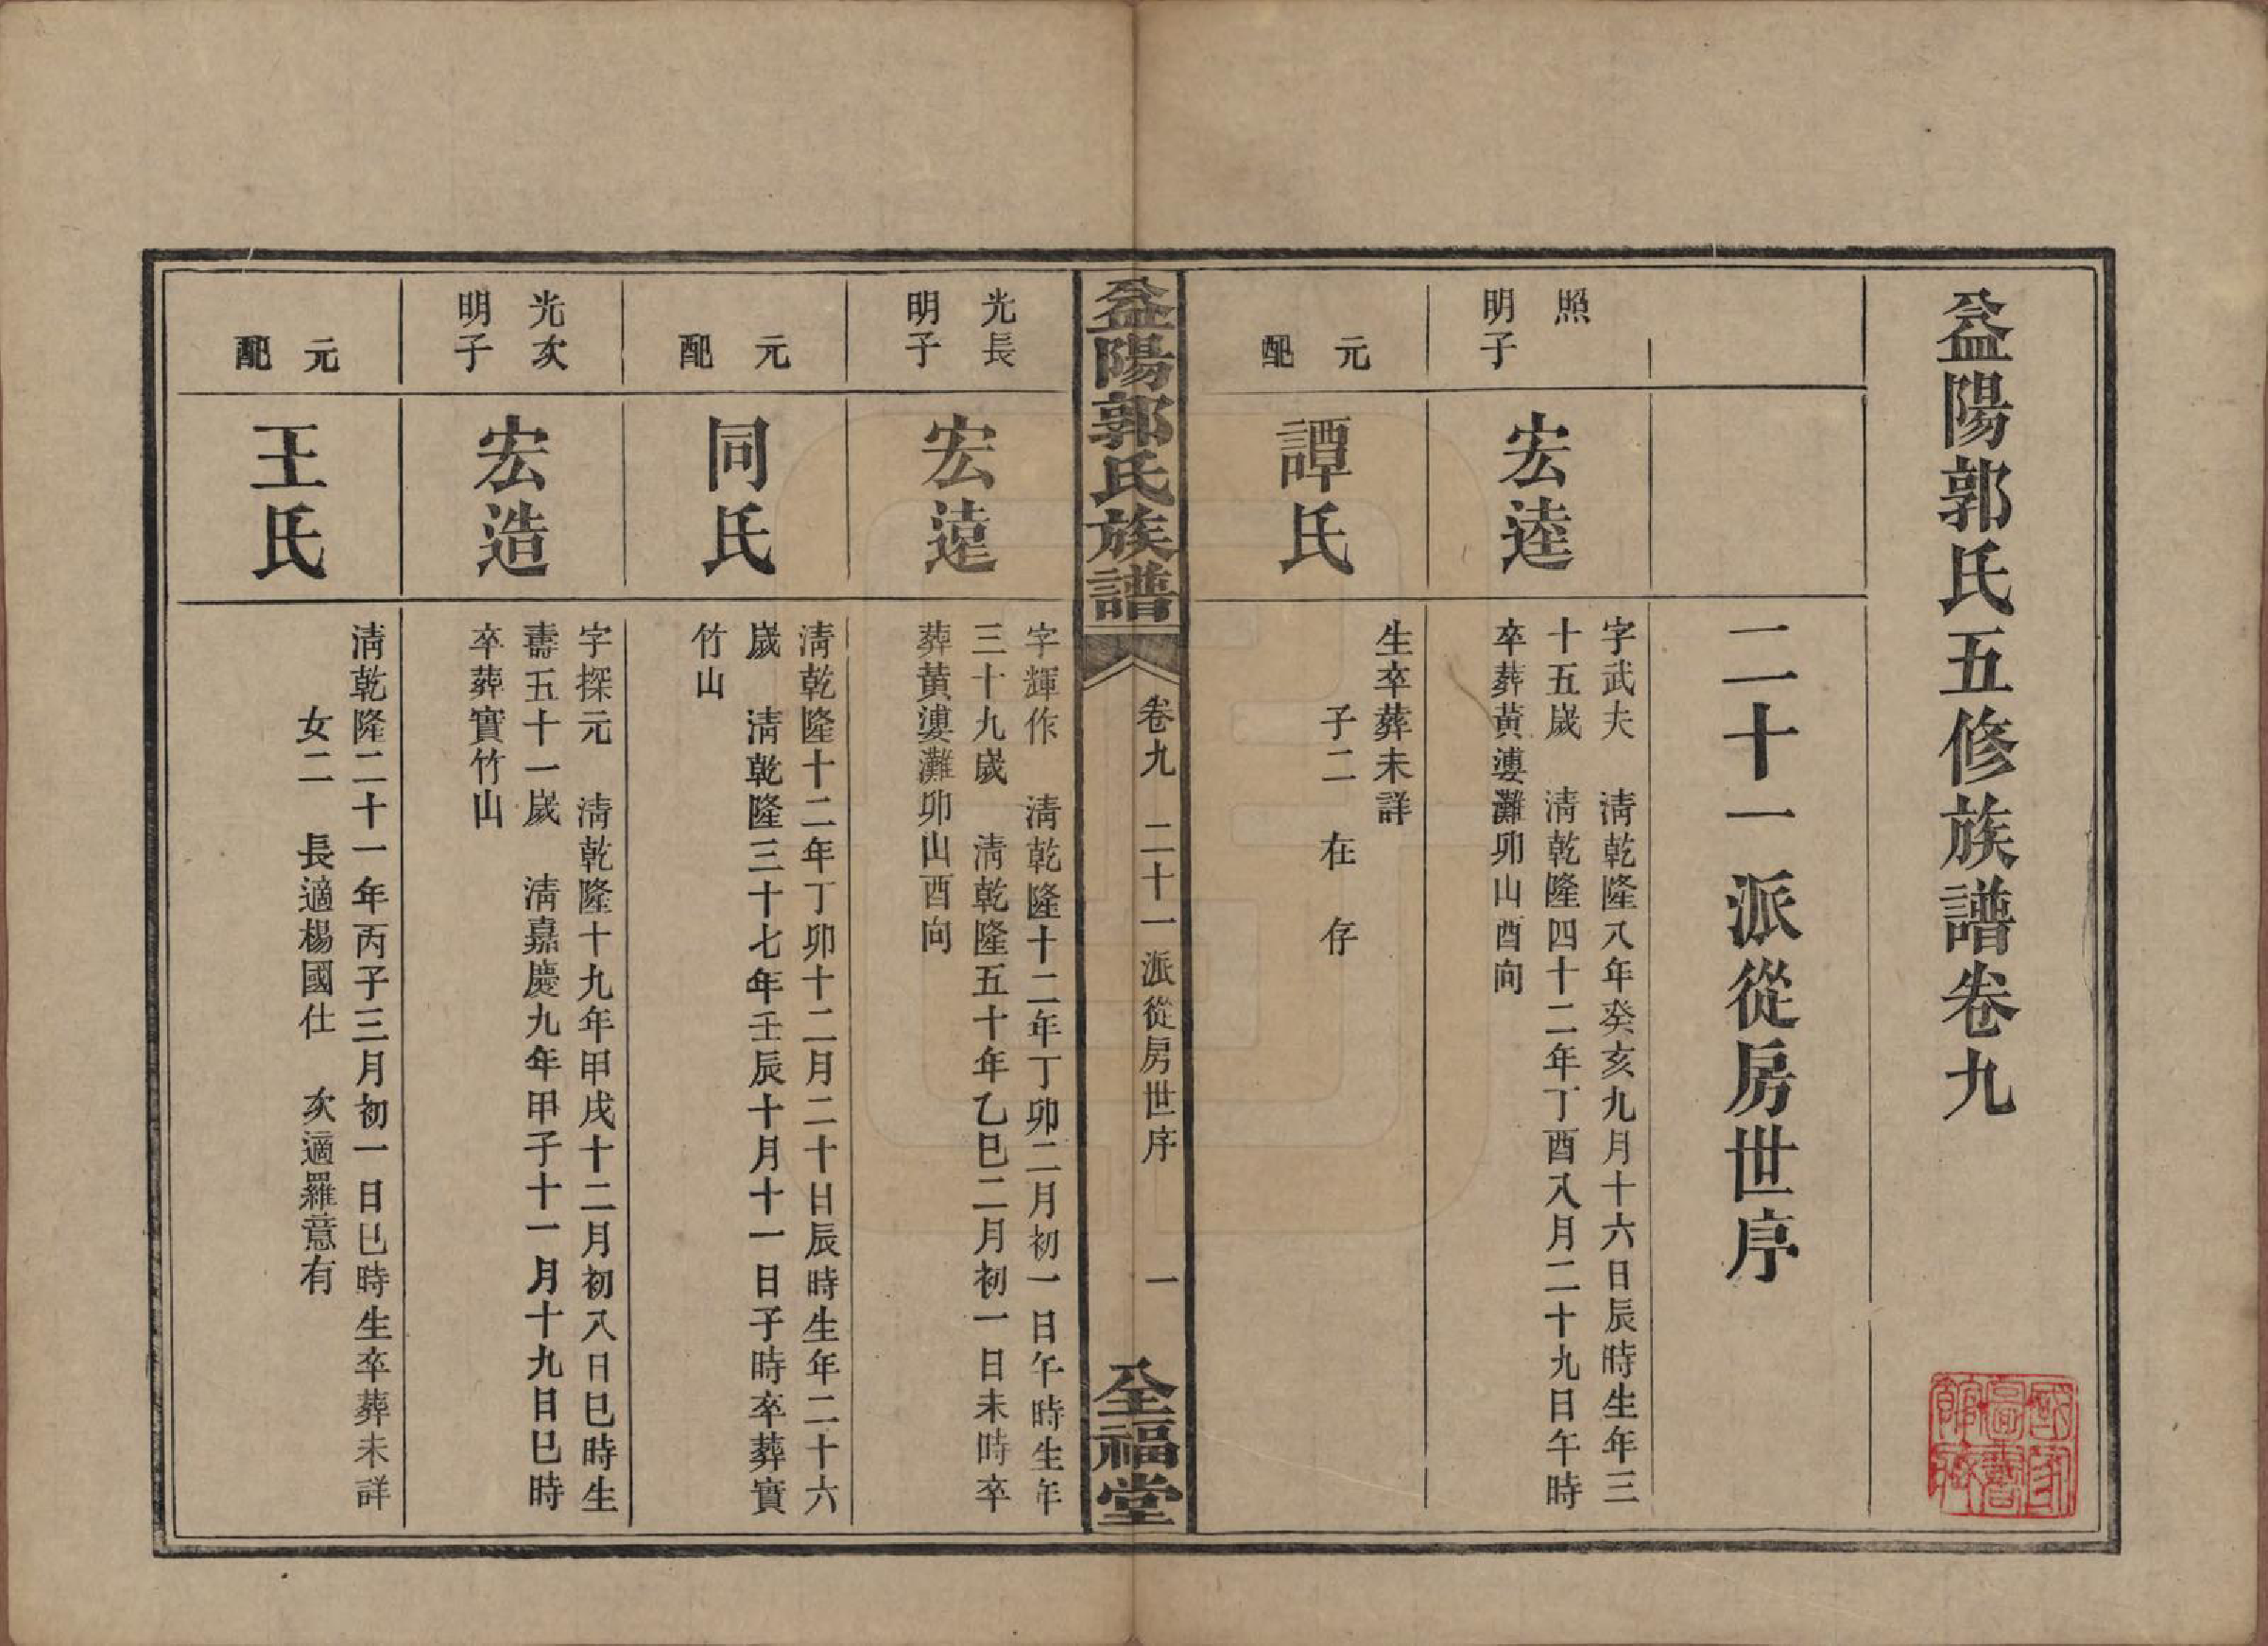 益陽郭氏五修族譜卷九
二十一派從房世序
照
明子
宏逵
字武夫　淸乾隆八年癸亥九月十六日辰時生年三
十五歲　淸乾隆四十二年丁酉八月二十九日午時
卒葬黃㜑灘卯山酉向
元配
譚氏
生卒葬未詳
子二　在　存
益陽郭氏族譜
卷九　二十一派從房世序　一
全福堂
光長
明子
宏遠
字輝作　淸乾隆十二年丁卯二月初一日午時生年
三十九歲　淸乾隆五十年乙巳二月初一日未時卒
葬黃㜑灘卯山酉向
元配
同氏
淸乾隆十二年丁卯十二月二十日辰時生年二十六
歲　淸乾隆三十七年壬辰十月十一日子時卒葬實
竹山
光次
明子
宏造
字探元　淸乾隆十九年甲戌十二月初八日巳時生
壽五十一歲　淸嘉慶九年甲子十一月十九日巳時
卒葬實竹山
元配
王氏
淸乾隆二十一年丙子三月初一日巳時生卒葬未詳
女二　長適楊國仕　次適羅意有
國家
圖書
館藏